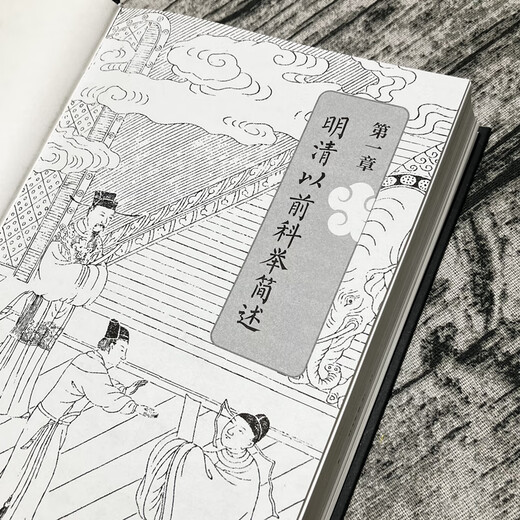 第一章
明清以前科举简述